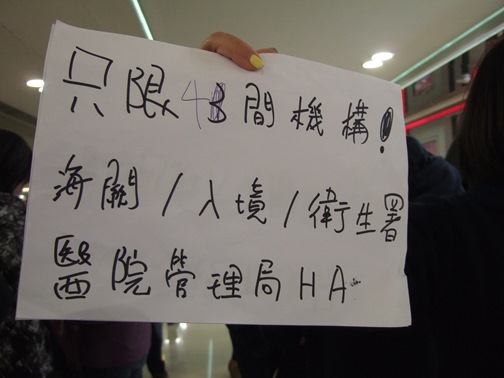 只限4間機構!
海關/入境/衛生署
醫院管理局HA